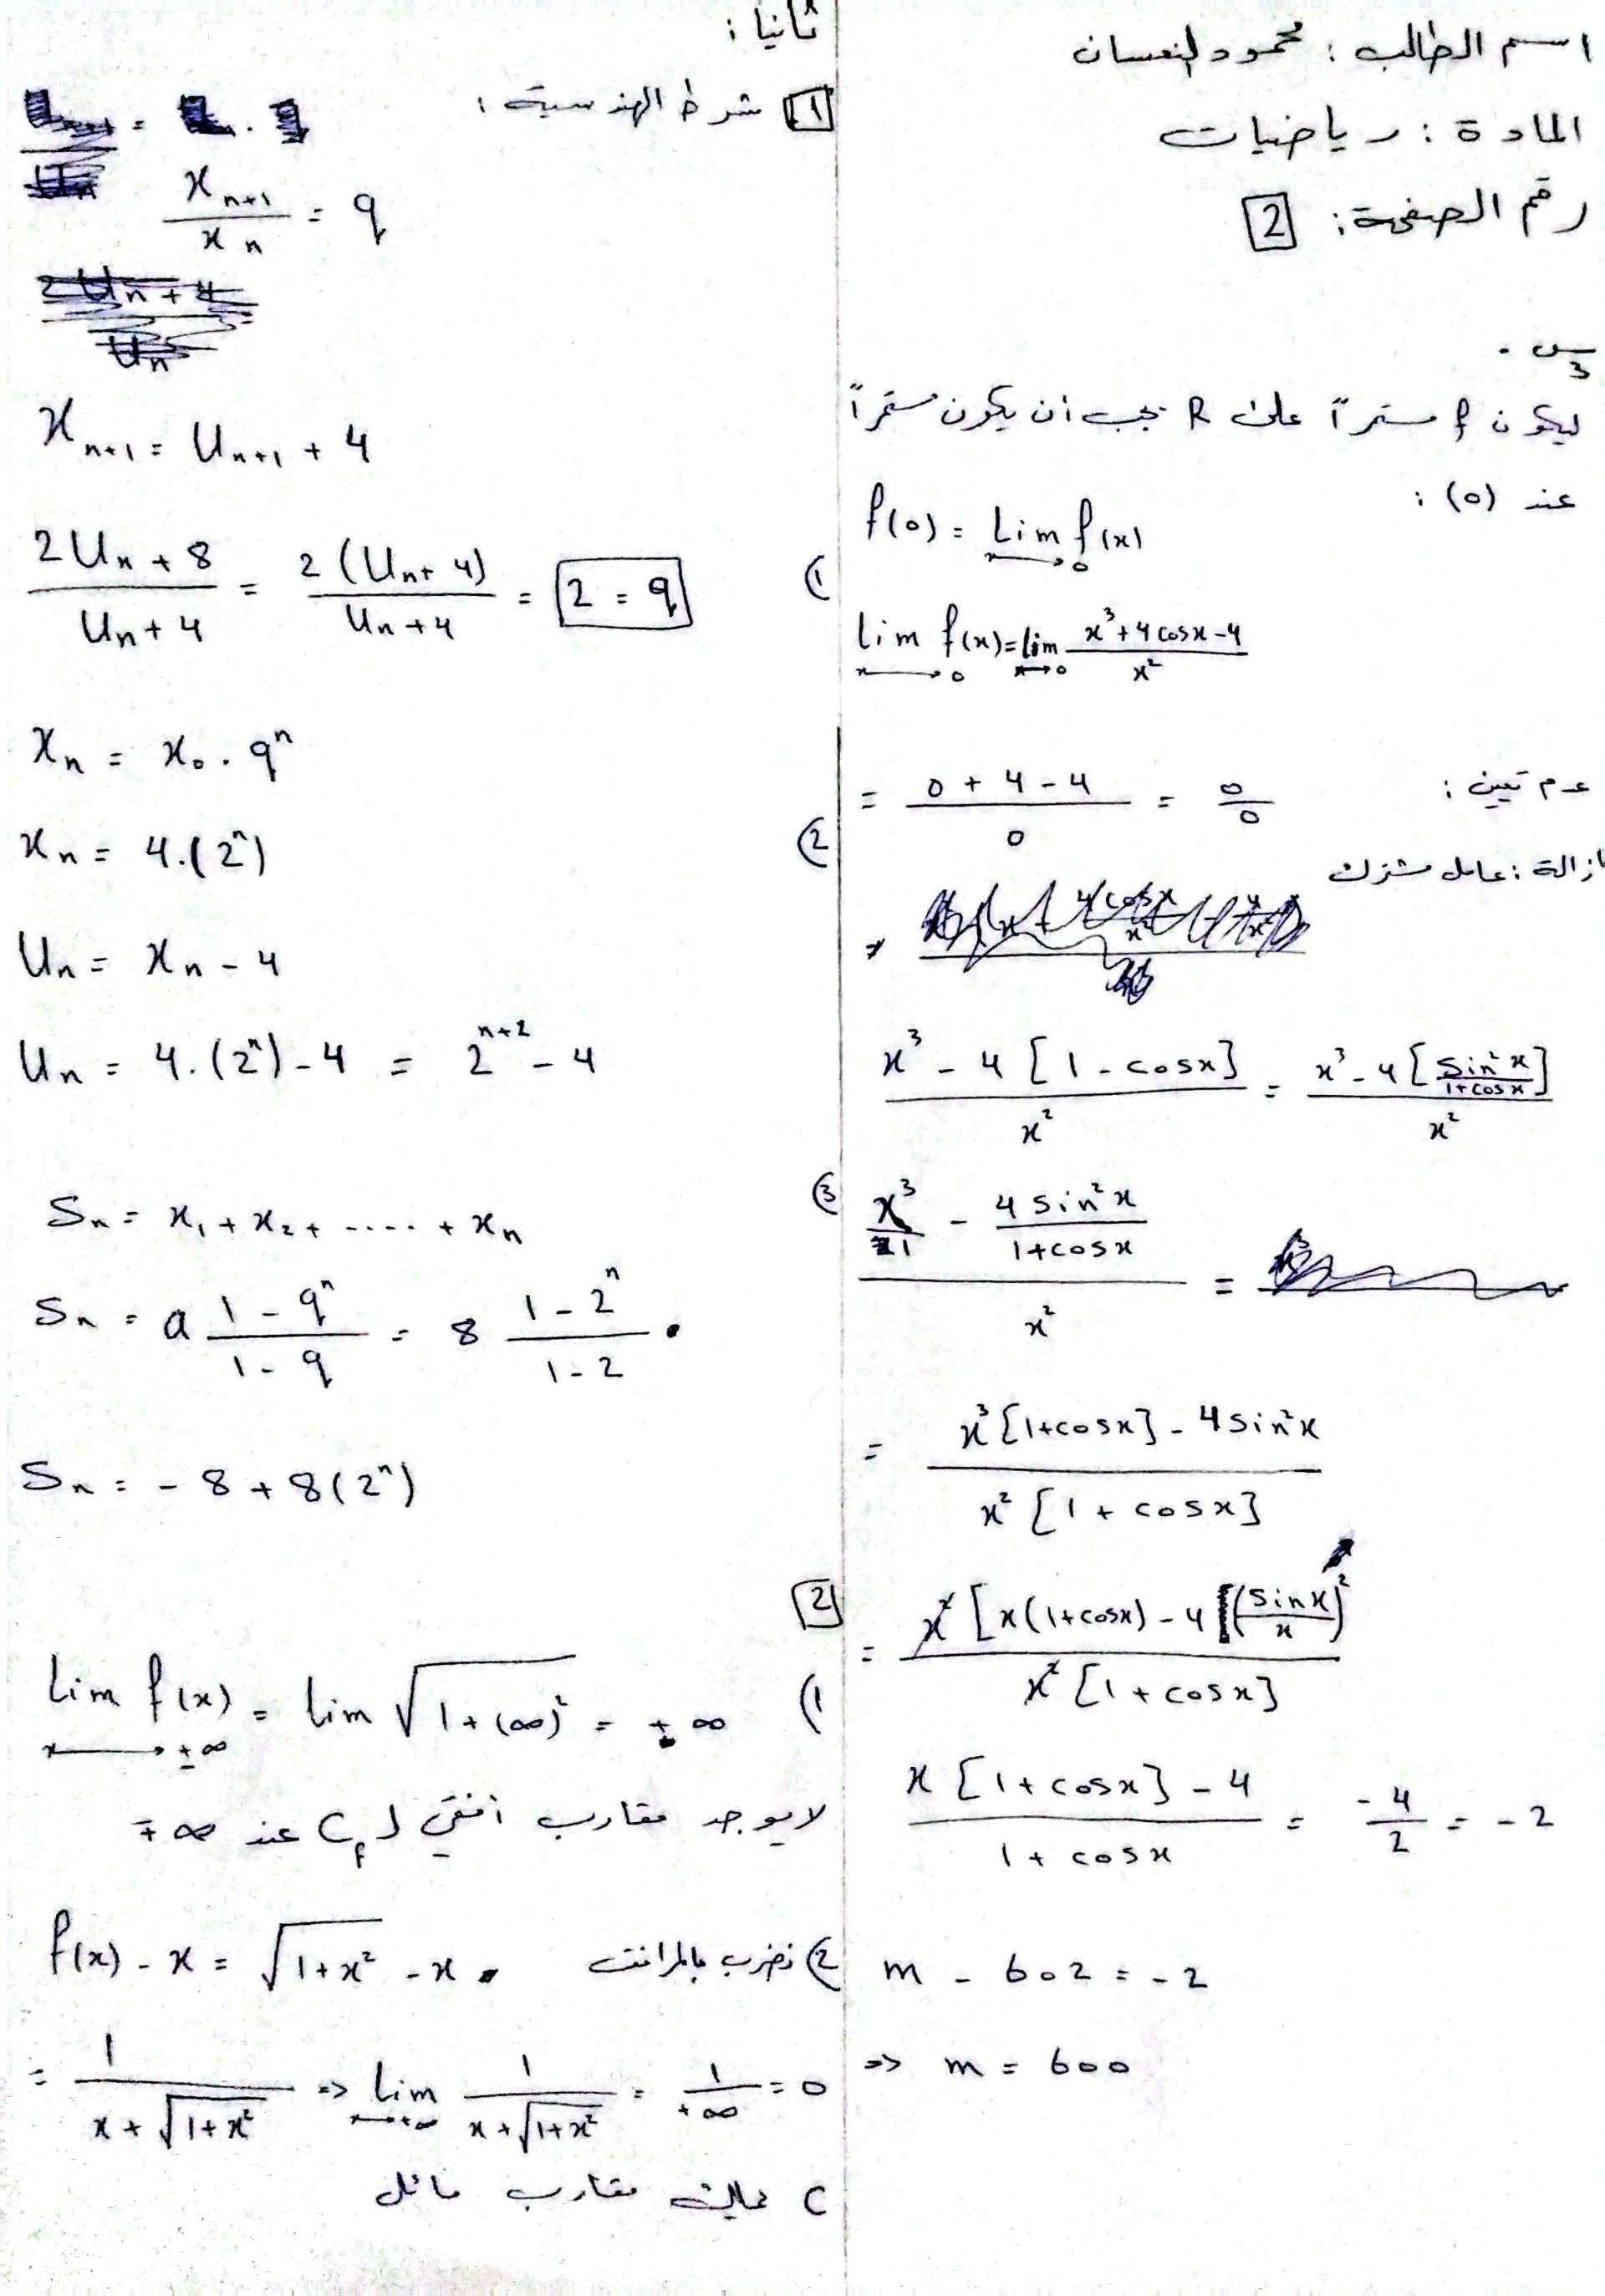 اسم الطالب : محمود النعسان
المادة : رياضيات
رقم الصفحة : 2
س3 .
ليكون f مستمراً على R يجب أن يكون مستمراً
عند (0) :
f(0) = Lim f(x)
x→0
lim f(x) = lim (x³ + 4cosx - 4)/x²
x→0 x→0
عدم تعيين : = (0 + 4 - 4)/0 = 0/0
ازالة : عامل مشترك
(x³ - 4[1 - cosx])/x² = (x³ - 4[sin²x/(1+cosx)])/x²
(x³/1 - 4sin²x/(1+cosx))/x² =
= (x³[1+cosx] - 4sin²x)/(x²[1 + cosx])
= (x²[x(1+cosx) - 4(sinx/x)²)/(x²[1 + cosx])
(x[1 + cosx] - 4)/(1 + cosx) = -4/2 = -2
m - 602 = -2
=> m = 600
ثانيا :
1 شرط الهندسية :
x_{n+1}/x_n = q
x_{n+1} = U_{n+1} + 4
1) (2U_n + 8)/(U_n + 4) = 2(U_n + 4)/(U_n + 4) = 2 = q
x_n = x_0 . q^n
2) x_n = 4.(2^n)
U_n = x_n - 4
U_n = 4.(2^n) - 4 = 2^{n+2} - 4
3) S_n = x_1 + x_2 + ..... + x_n
S_n = a (1 - q^n)/(1 - q) = 8 (1 - 2^n)/(1 - 2)
S_n = - 8 + 8(2^n)
2
1) Lim f(x) = lim √(1 + (∞)²) = +∞
x→±∞
لا يوجد مقارب أفقي لـ C_f عند ∓∞
2) نضرب بالمرافق f(x) - x = √(1+x²) - x
= 1/(x + √(1+x²)) => Lim 1/(x + √(1+x²)) = 1/+∞ = 0
x→+∞
مقارب مائل